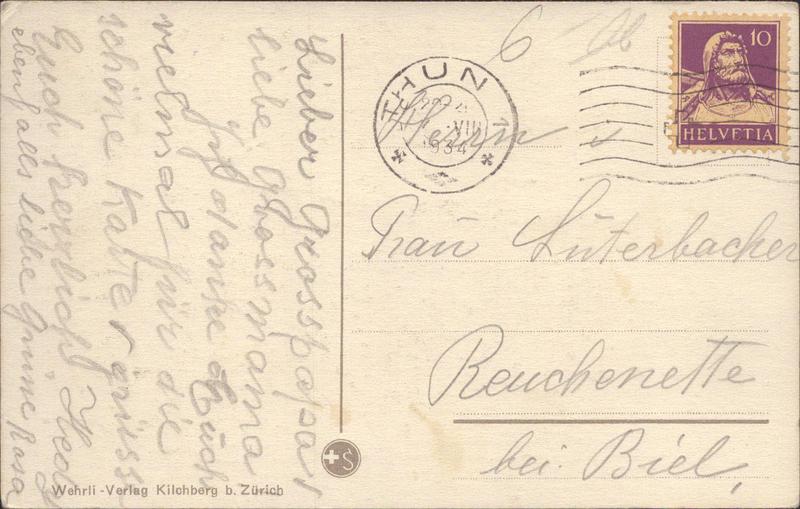 Lieber Grosspapa!
liebe Grossmama
Ich danke Euch
vielmal für die
schöne Karte grüsse
Euch herzlich Hedy
ebenfalls liebe Grüsse Rosa
THUN 1
VIII
1934
10
HELVETIA
Herrn u
Frau Luterbacher
Reuchenette
bei Biel,
S
Wehrli-Verlag Kilchberg b. Zürich